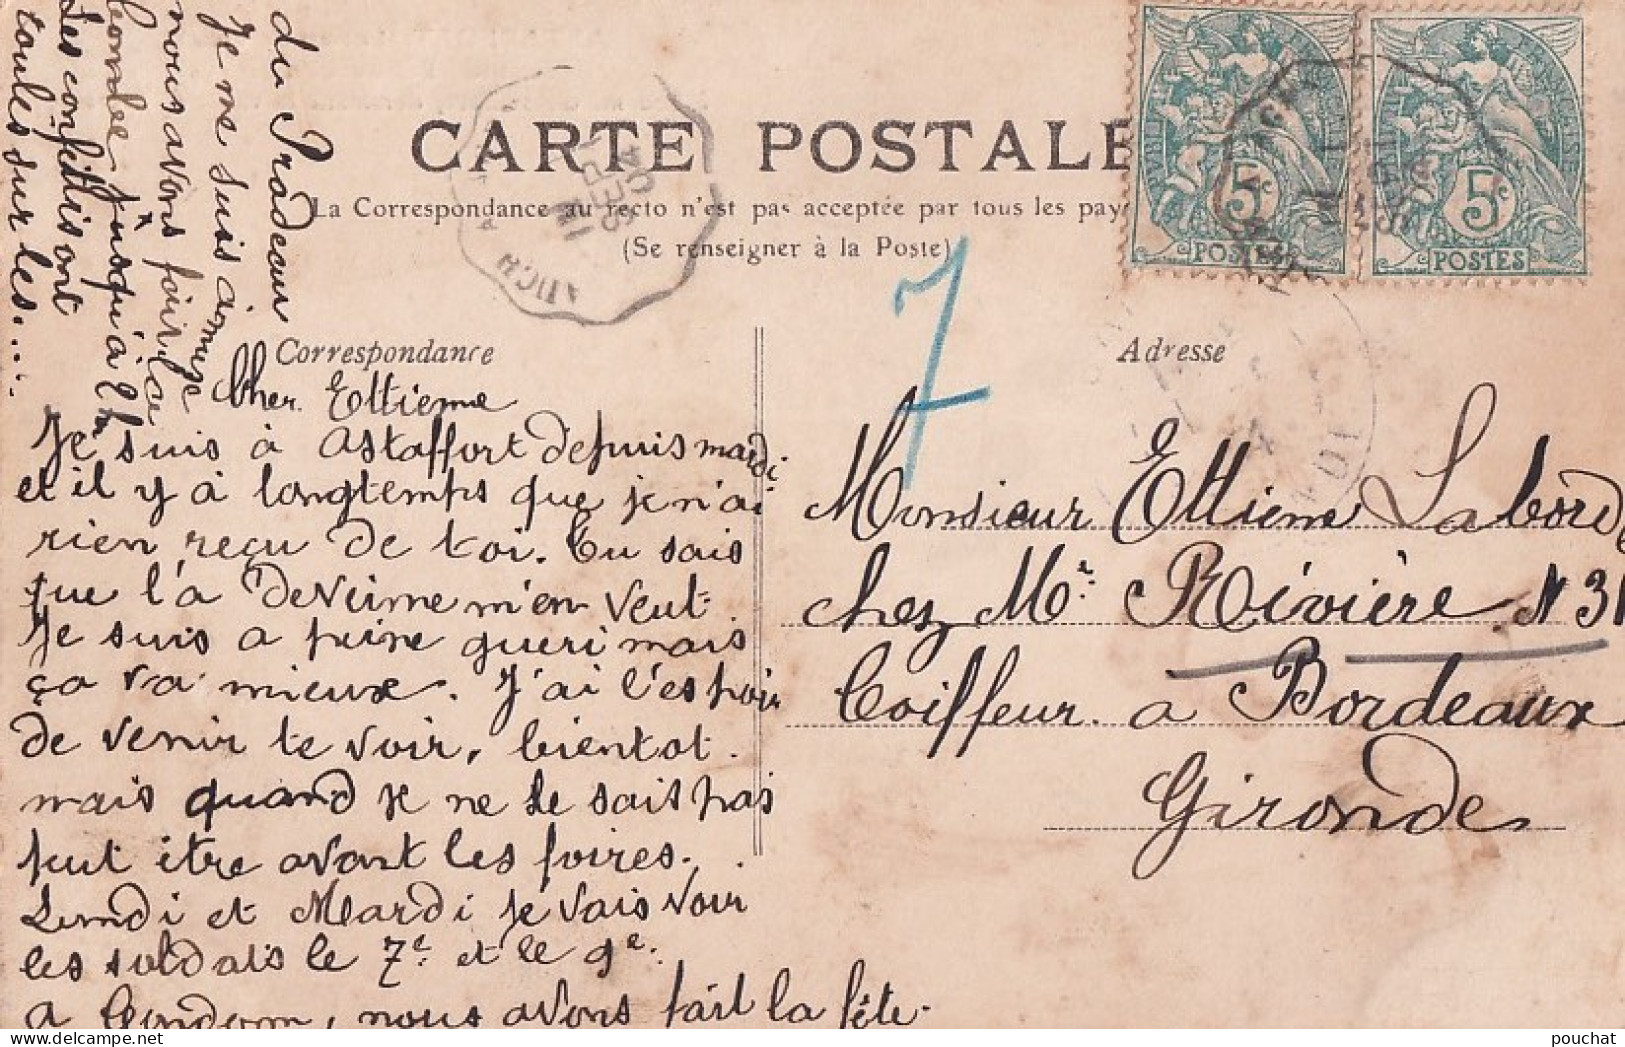 CARTE POSTALE
La Correspondance au recto n'est pas acceptée par tous les pay
(Se renseigner à la Poste)
5c
POSTES
5c
POSTES
7
Correspondance
Adresse
Cher Ettienne
Je suis à Astaffort depuis mardi
et il y à longtemps que je n'ai
rien reçu de toi. Tu sais
que l'a
m'en veut
Je suis a peine gueri mais
ça va mieux. J'ai l'espoir
de venir te voir, bientot.
mais quand je ne le sais pas
peut être avant les foires.
Lundi et Mardi je vais voir
les soldats le 7e et le 9e.
a Condom, nous avons fait la fête.
du Pradeau
Je me suis amusé
nous avons fait la
bombe jusqu'à 2h
Les confettis ont
roulés sur les....
Monsieur Ettienne Laborde
chez Mr. Rivière N 31
Coiffeur a Bordeaux
Gironde
AUCH
SEPT
04
pouchat